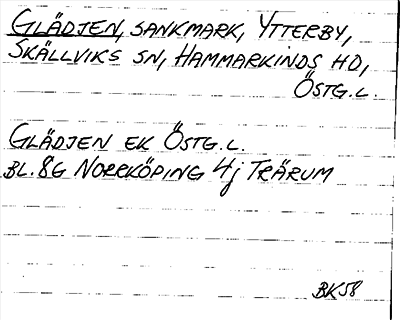 GLÄDJEN, SANKMARK, YTTERBY,
SKÄLLVIKS SN, HAMMARKINDS HD,
ÖSTG.L.
GLÄDJEN EK ÖSTG.L.
BL. 8G NORRKÖPING 4j TRÄRUM
BK58